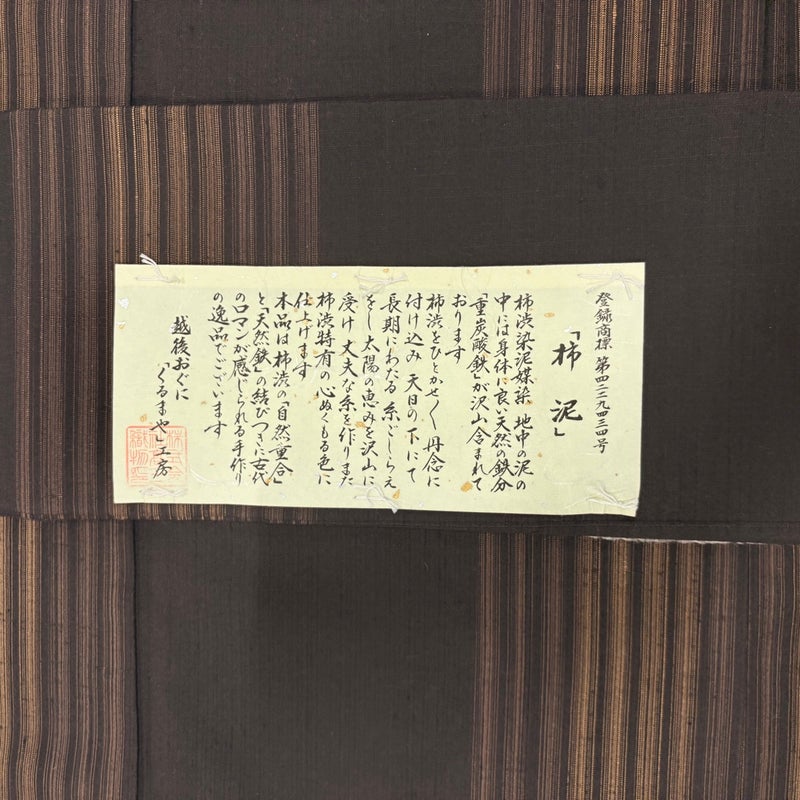 登録商標 第四二二九四三四号
「柿泥」
柿渋染泥媒染 地中の泥の
中には身体に良い天然の鉄分
「重炭酸鉄」が沢山含まれて
おります
柿渋をひとかせづく 丹念に
付け込み 天日の下にて
長期にわたる 糸ごしらえ
をし 太陽の恵みを沢山に
受け 丈夫な糸を作りまた
柿渋特有の心ぬくもる色に
仕上げます
本品は柿渋の「自然重合」
と「天然鉄」の結びつきに古代
のロマンが感じられる手作り
の逸品でございます
越後おぐに
「くるまや」工房